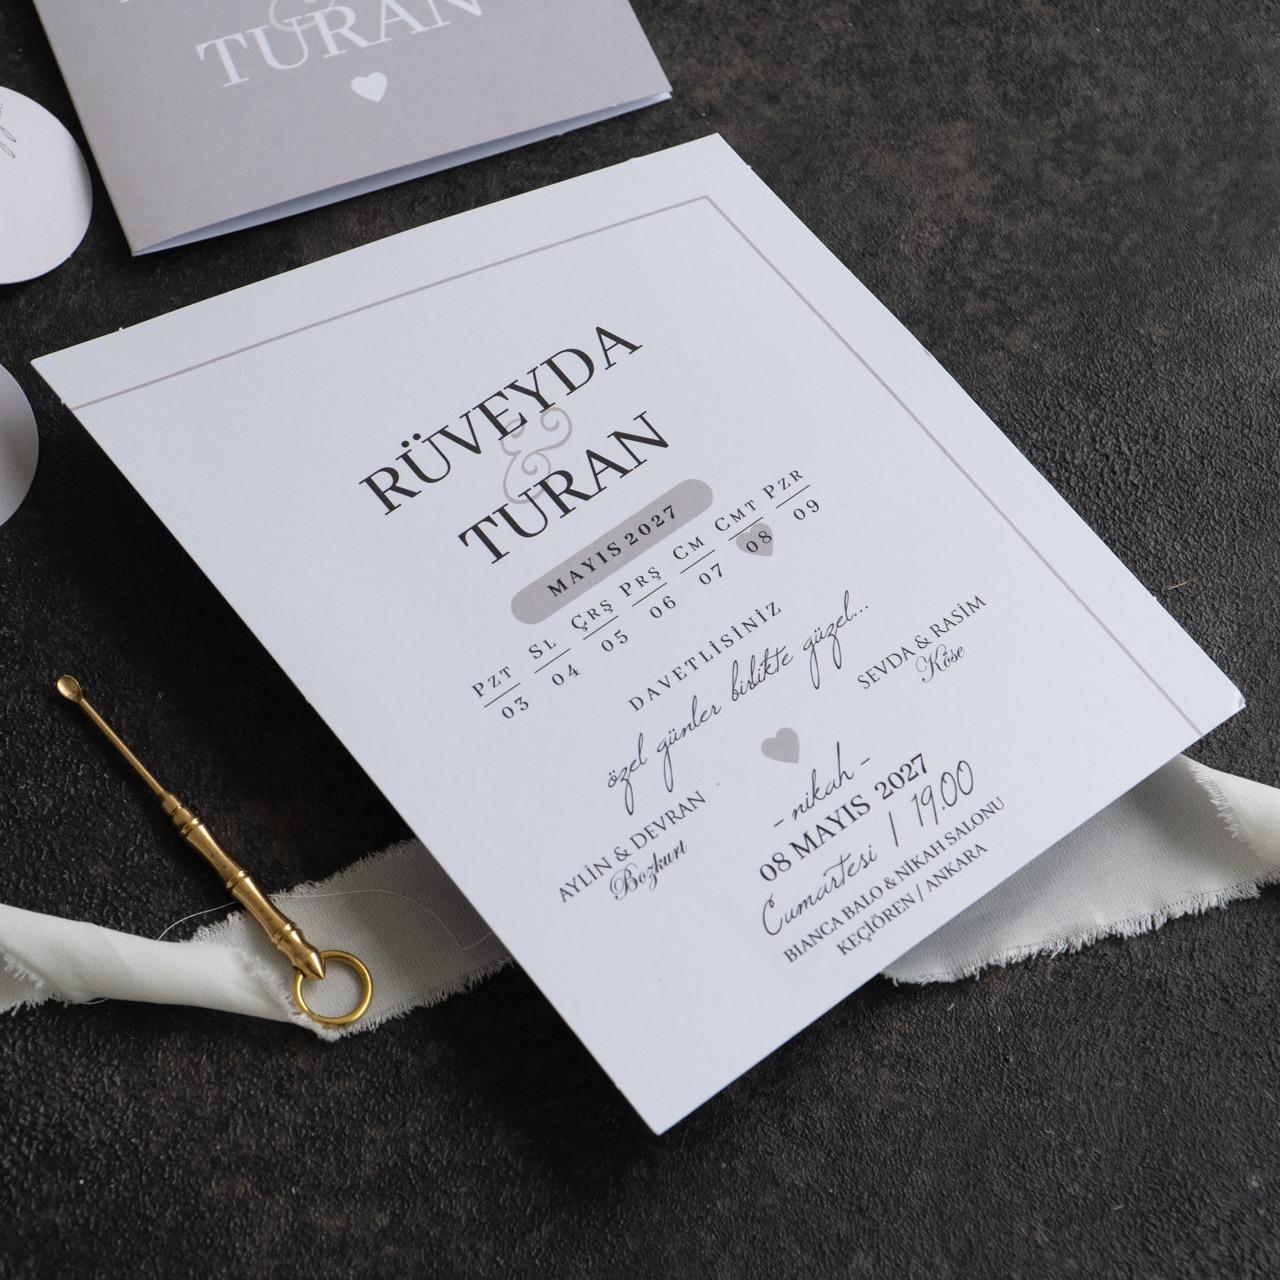 &
TURAN
RÜVEYDA
&
TURAN
MAYIS 2027
PZT SL ÇRŞ PRŞ CM CMT PZR
03 04 05 06 07 08 09
DAVETLİSİNİZ
özel günler birlikte güzel...
AYLİN & DEVRAN
Bozkurt
SEVDA & RASİM
Köse
- nikah -
08 MAYIS 2027
Cumartesi / 19.00
BIANCA BALO & NİKAH SALONU
KEÇİÖREN / ANKARA